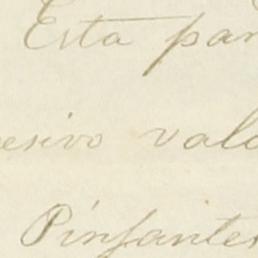 Esta par
esivo valo
Pinfantes